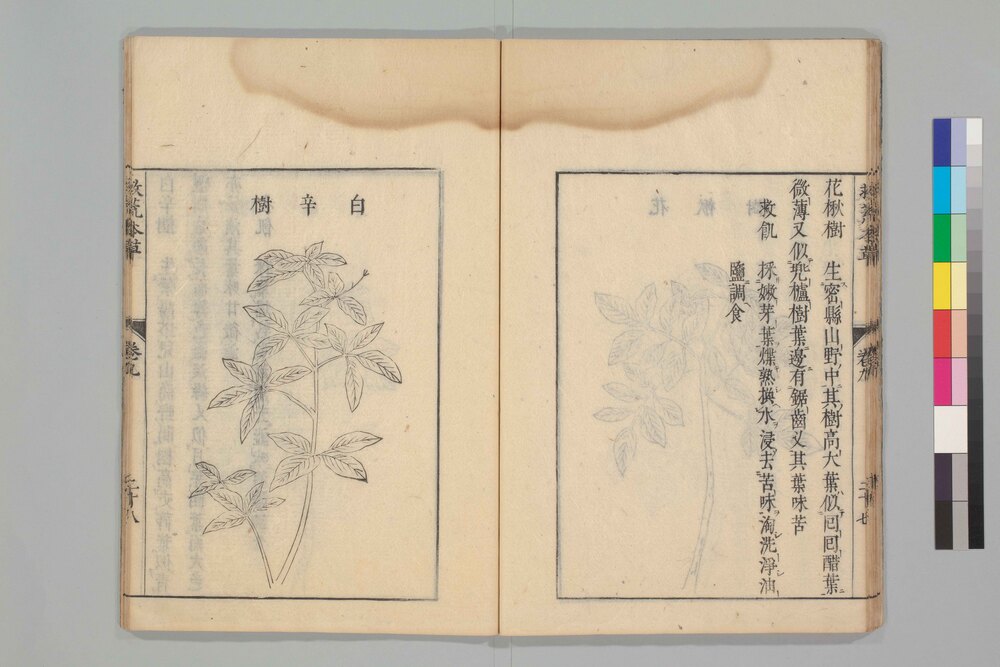 花楸樹　生密縣山野中其樹高大葉似回回醋葉
微薄又似兜櫨樹葉邊有鋸齒叉其葉味苦
救飢　採嫩芽葉煠熟換水浸去苦味淘洗淨油
鹽調食
救荒本草　卷九　二十七
白辛樹
救荒本草　卷九　二十八